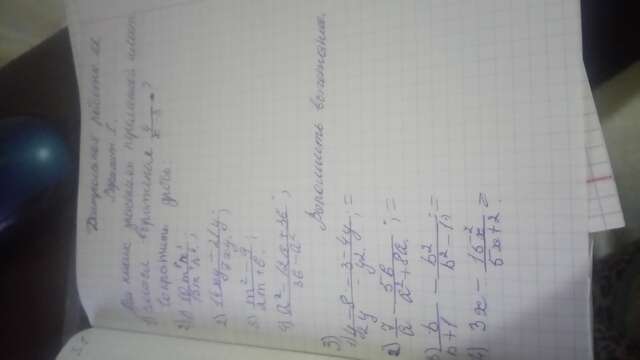 Контрольная работа №1
Вариант 1.
При каких значениях переменной имеет
1) смысл выражение 4/(x-3) ?
Сократить дробь:
2) 1)
2) (14xy-21y)/(7xy);
3) (m²-9)/(2m+6);
4) (a²-12a+36)/(36-a²);
Выполнить вычитание.
3)
1) (4-8)/(2y) - (3-4y)/(y2); =
2) 7/a - 56/(a²+8a); =
3) b/(b+1) - b²/(b²-1); =
4) 3x - 15x²/(5x+2) =